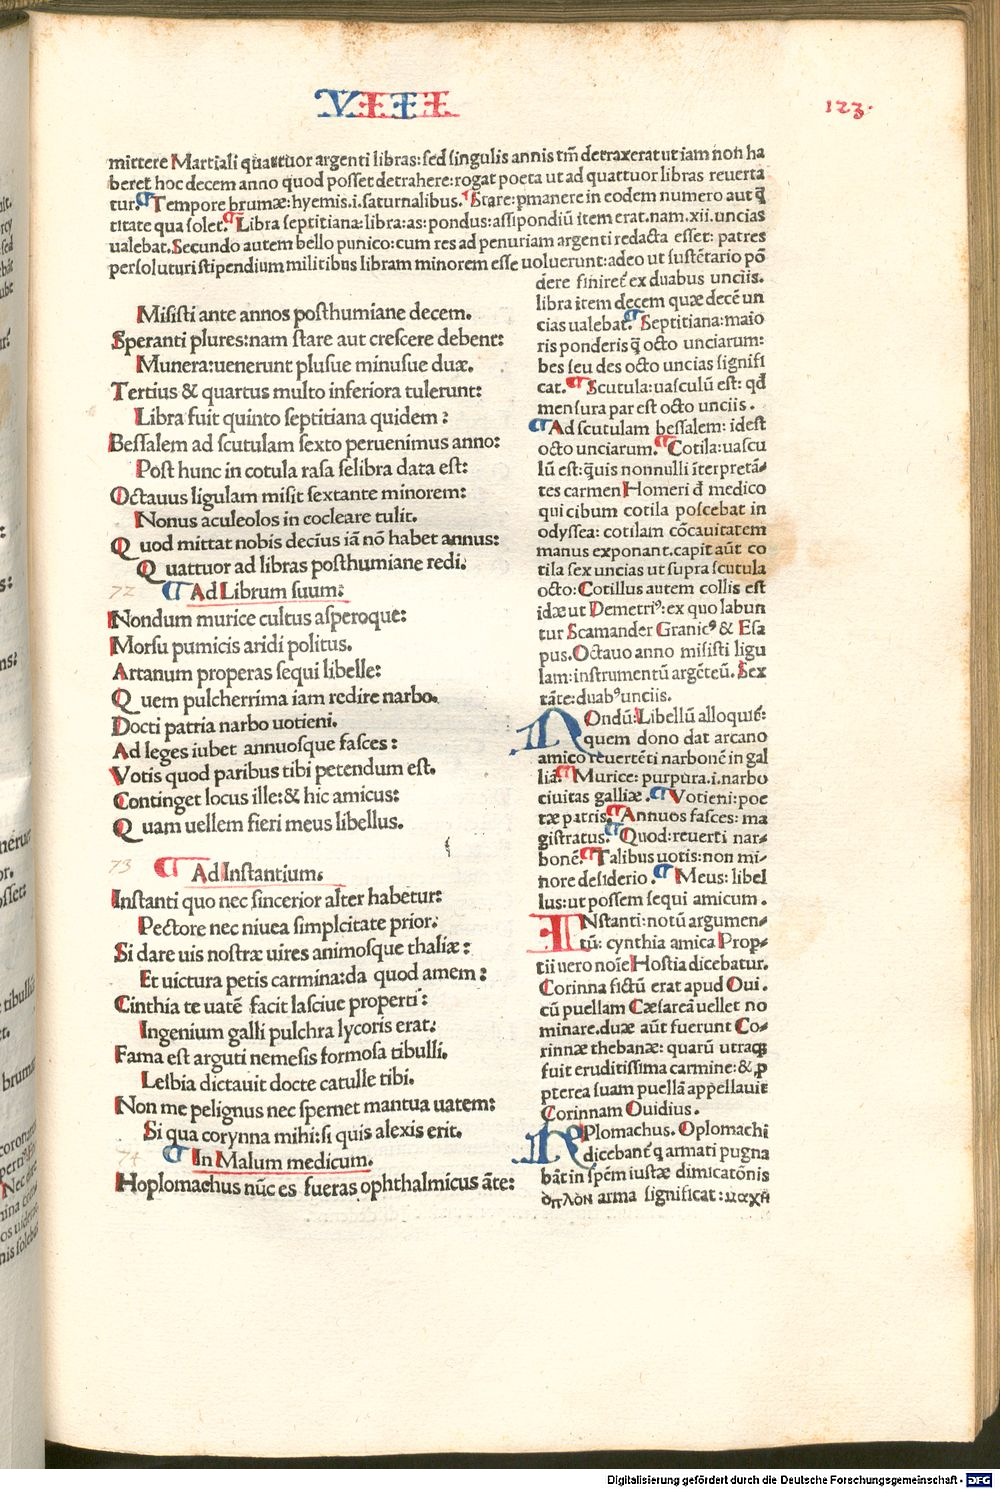 VIII
123.
mittere Martiali quattuor argenti libras: sed singulis annis tm̄ detraxerat ut iam non ha
beret hoc decem anno quod posset detrahere: rogat poeta ut ad quattuor libras reuerta
tur. ¶ Tempore brumæ: hyemis .i. saturnalibus. ¶ Stare: ꝑmanere in eodem numero aut q̄
titate qua solet. ¶ Libra septitiana: libra: as: pondus: assipondiū item erat. nam .xii. uncias
ualebat. Secundo autem bello punico: cum res ad penuriam argenti redacta esset: patres
persoluturi stipendium militibus libram minorem esse uoluerunt: adeo ut sustētario pō
Misisti ante annos posthumiane decem.
Speranti plures: nam stare aut crescere debent:
Munera: uenerunt plusue minusue duæ.
Tertius & quartus multo inferiora tulerunt:
Libra fuit quinto septitiana quidem:
Bessalem ad scutulam sexto peruenimus anno:
Post hunc in cotula rasa selibra data est:
Octauus ligulam misit sextante minorem:
Nonus aculeolos in cocleare tulit.
Quod mittat nobis decius iā nō habet annus:
Quattuor ad libras posthumiane redi.
72 ¶ Ad Librum suum:
Nondum murice cultus asperoque:
Morsu pumicis aridi politus.
Artanum properas sequi libelle:
Quem pulcherrima iam redire narbo.
Docti patria narbo uotieni.
Ad leges iubet annuosque fasces:
Votis quod paribus tibi petendum est.
Continget locus ille: & hic amicus:
Quam uellem fieri meus libellus.
73 ¶ Ad Instantium.
Instanti quo nec sincerior alter habetur:
Pectore nec niuea simplcitate prior:
Si dare uis nostræ uires animosque thaliæ:
Et uictura petis carmina: da quod amem:
Cinthia te uatē facit lasciue properti:
Ingenium galli pulchra lycoris erat:
Fama est arguti nemesis formosa tibulli.
Lesbia dictauit docte catulle tibi.
Non me pelignus nec spernet mantua uatem:
Si qua corynna mihi: si quis alexis erit.
74 ¶ In Malum medicum.
Hoplomachus nūc es fueras ophthalmicus āte:
dere finiret̄ ex duabus unciis.
libra item decem quæ decē un
cias ualebat. ¶ Septitiana: maio
ris ponderis q̄ octo unciarum:
bes seu des octo uncias signifi
cat. ¶ Scutula: uasculū est: qd̄
mensura par est octo unciis.
¶ Ad scutulam bessalem: idest
octo unciarum. ¶ Cotila: uascu
lū est: q̄uis nonnulli īterpretā-
tes carmen Homeri d̄ medico
qui cibum cotila poscebat in
odyssea: cotilam cōcauitatem
manus exponant. capit aūt co
tila sex uncias ut supra scutula
octo: Cotillus autem collis est
idæ ut Demetriꝰ: ex quo labun
tur Scamander Granicꝰ & Esa
pus. Octauo anno misisti ligu
lam: instrumentū argēteū. Sex
tāte: duabꝰ unciis.
NOndū: Libellū alloquiť:
quem dono dat arcano
amico reuertēti narbonē in gal
lia. ¶ Murice: purpura .i. narbo
ciuitas galliæ. ¶ Votieni: poe
tæ patris. ¶ Annuos fasces: ma
gistratus. ¶ Quod: reuerti nar-
bonē. ¶ Talibus uotis: non mi-
nore desiderio. ¶ Meus: libel
lus: ut possem sequi amicum.
INstanti: notū argumen-
tū: cynthia amica Prop-
tii uero noīe Hostia dicebatur.
Corinna fictū erat apud Oui.
cū puellam Cæsareā uellet no
minare. duæ aūt fuerunt Co-
rinnæ thebanæ: quarū utraqꝫ
fuit eruditissima carmine: & ꝓ
pterea suam puellā appellauit
Corinnam Ouidius.
HOplomachus. Oplomachi
dicebant̄ q armati pugna
bāt in spēm iustæ dimicatōnis
ὁπλον arma significat: μαχη
Digitalisierung gefördert durch die Deutsche Forschungsgemeinschaft - DFG